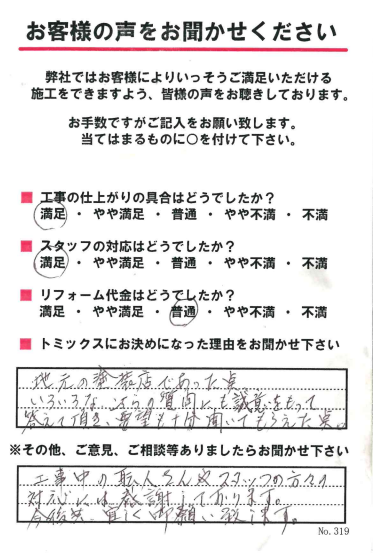 お客様の声をお聞かせください
弊社ではお客様によりいっそうご満足いただける
施工をできますよう、皆様の声をお聴きしております。
お手数ですがご記入をお願い致します。
当てはまるものに○を付けて下さい。
■ 工事の仕上がりの具合はどうでしたか？
満足 ・ やや満足 ・ 普通 ・ やや不満 ・ 不満
■ スタッフの対応はどうでしたか？
満足 ・ やや満足 ・ 普通 ・ やや不満 ・ 不満
■ リフォーム代金はどうでしたか？
満足 ・ やや満足 ・ 普通 ・ やや不満 ・ 不満
■ トミックスにお決めになった理由をお聞かせ下さい
地元の塗装店であった点
いろいろなこちらの質問にも誠意をもって
答えて頂き、希望も十分聞いてもらえた点。
※その他、ご意見、ご相談等ありましたらお聞かせ下さい
工事中の職人さんやスタッフの方々の
対応には感謝しております。
今後共、宜しく御願い致します。
No. 319